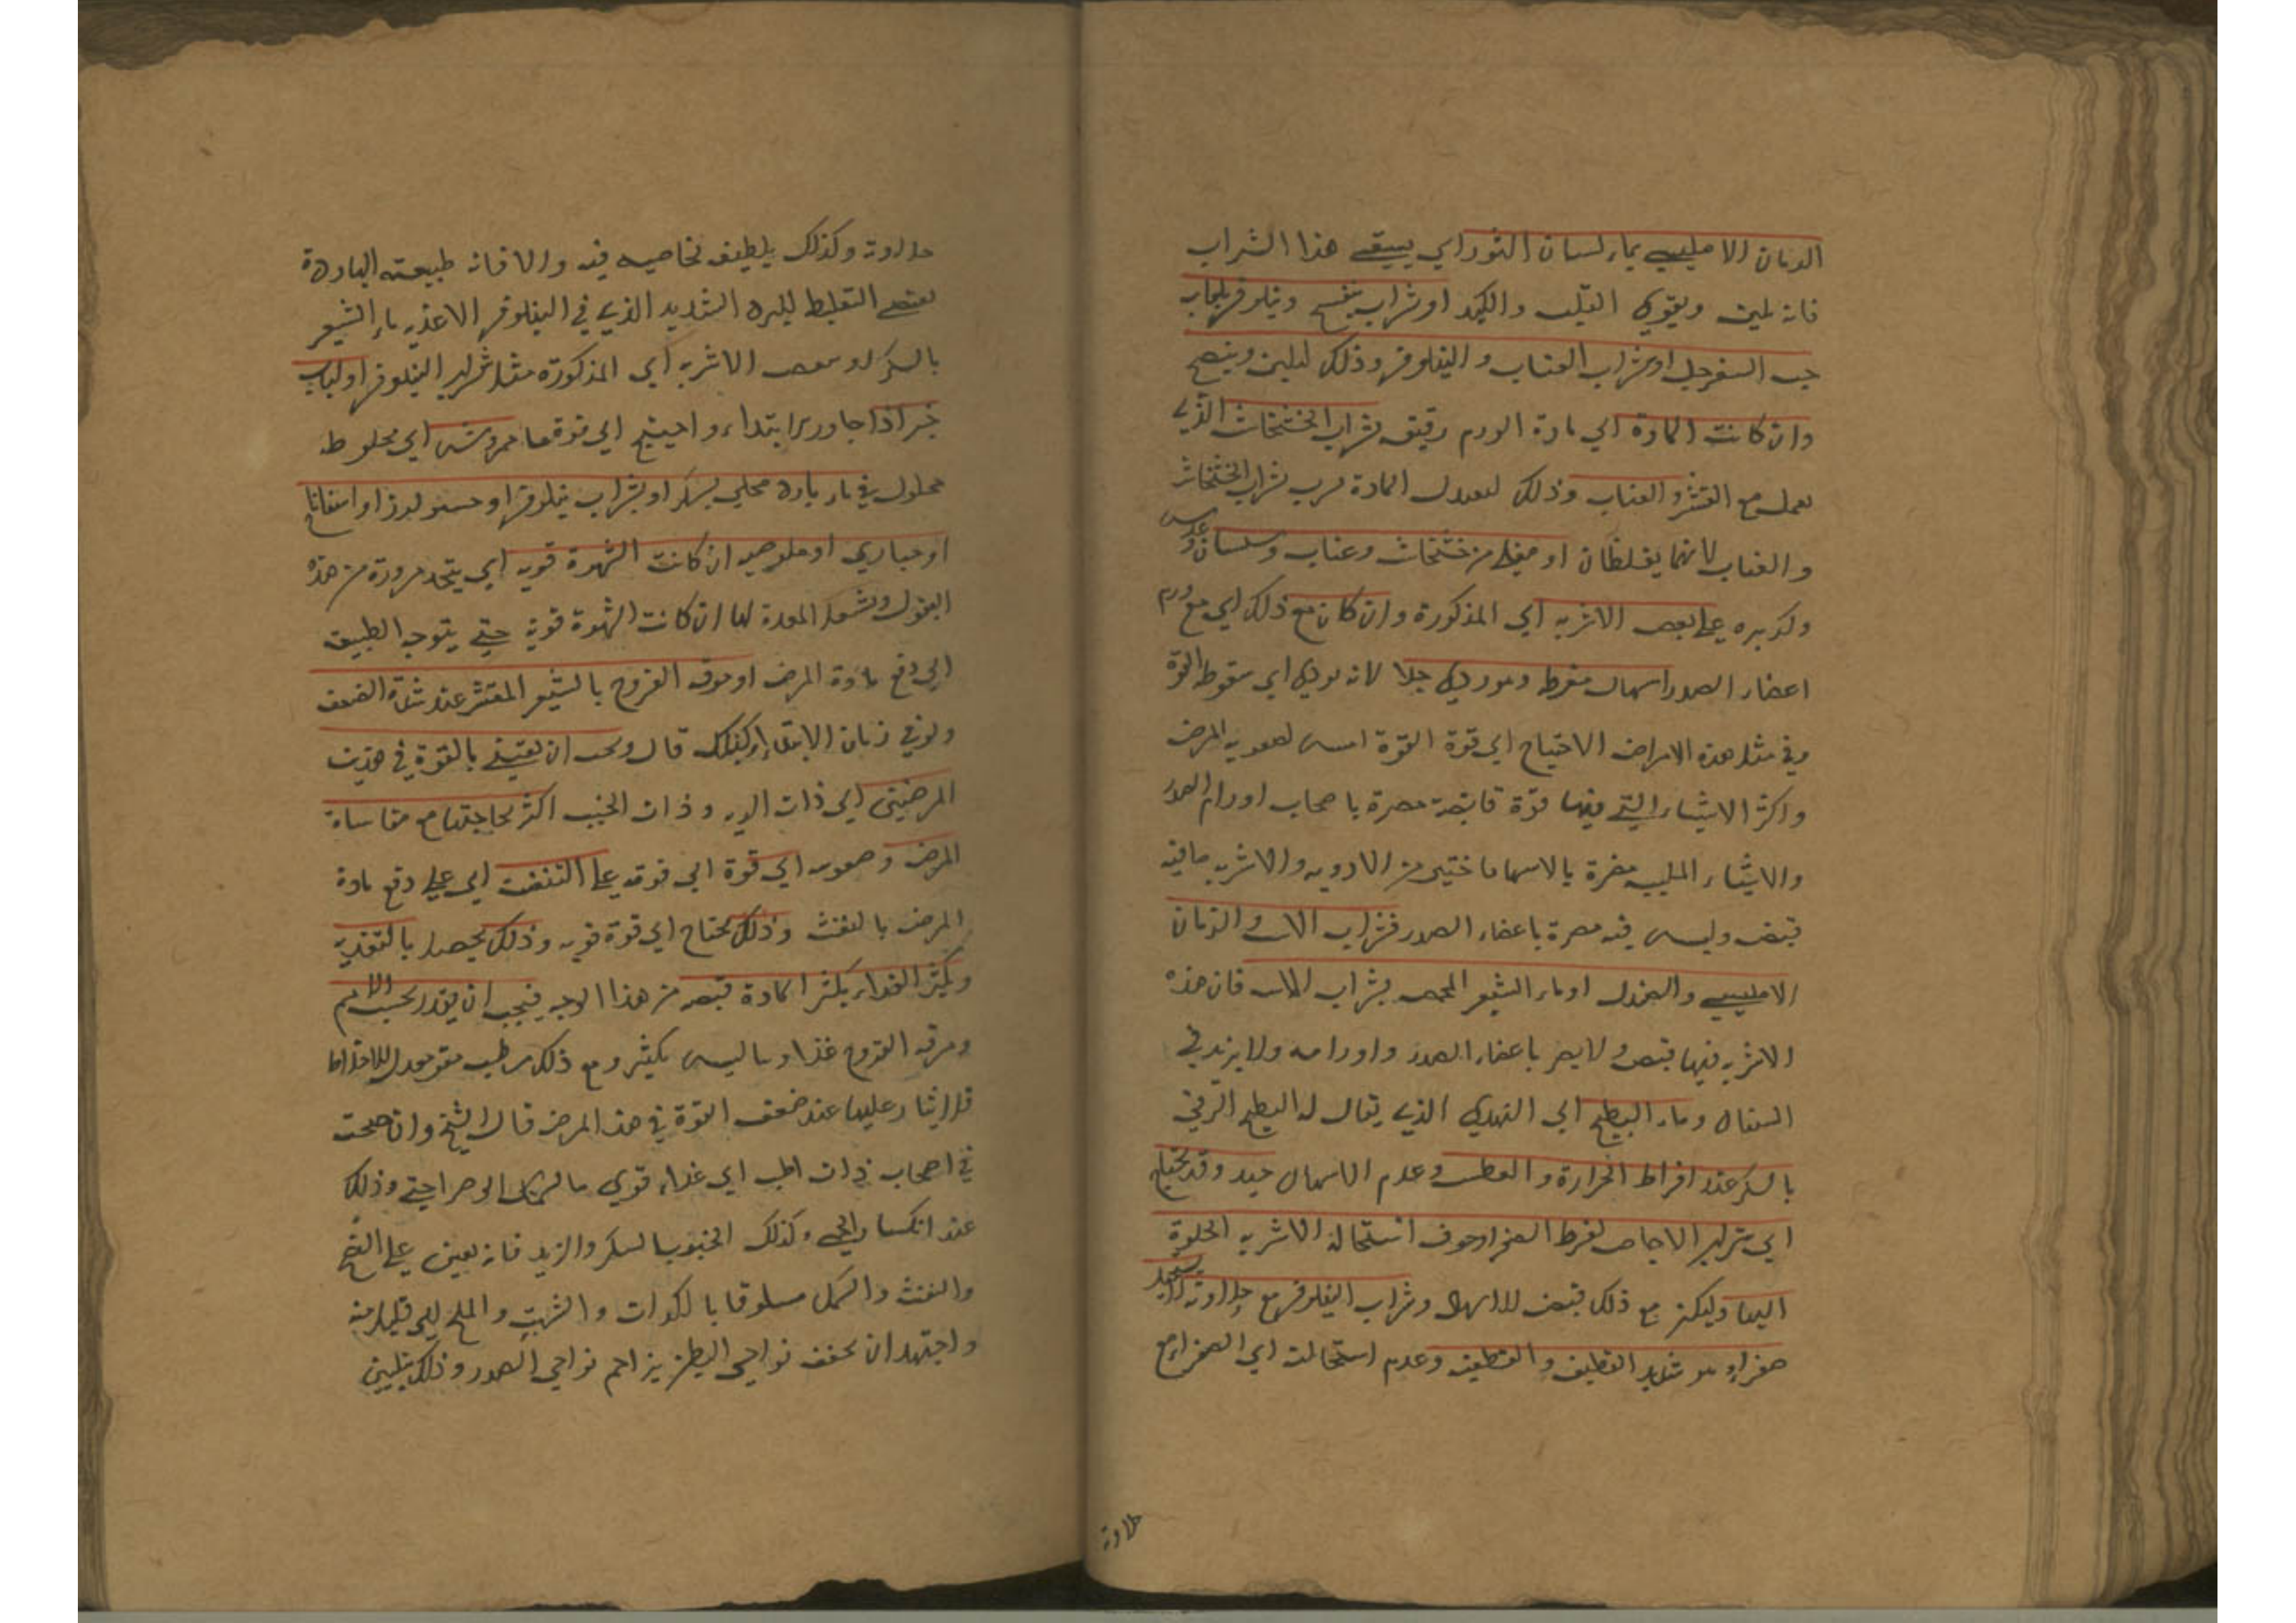 الرمان الامليسي بماء لسان الثور اي يسقي هذا الشراب
فانه يلين ويقوي القلب والكبد او شراب بنفسج ونيلوفر بلعاب
حب السفرجل او شراب العناب والنيلوفر وذلك لتليين وينضج
وان كانت المادة اي مادة الورم رقيق شراب الخشخاش الذي
يعمل مع القشر والعناب وذلك لتعدل المادة شراب الخشخاش
والعناب لانهما يغلظان او مغلي من خشخاش وعناب وسبستان وعدس
وكزبره علي بعض الاشربه اي المذكورة وان كان مع ذلك اي مع ورم
اعضاء الصدر اسهال مفرط وهو ردي جدا لانه يودي الي سقوط القوة
وفي مثل هذه الامراض الاحتياج الي قوة القوة امس لصعوبه المرض
واكثر الاشياء التي فيها قوة قابضة مضرة باصحاب اورام الصدر
والاشياء الملينه مضرة بالاسهال فاختير من الادويه والاشربه ما فيه
قبض وليس فيه مضرة باعضاء الصدر فشراب الاس والرمان
الامليسي والصندل او ماء الشعير المحمص بشراب الاس فان هذه
الاشربه فيها قبض ولا يضر باعضاء الصدر واورامه ولا يزيد في
السعال وماء البطيخ اي الهندي الذي يقال له البطيخ الرقي
بالسكر عند افراط الحرارة والعطش وعدم الاسهال جيد وقد يحتاج
الي شراب الاجاص لفرط الصفراء وخوف استحالة الاشربه الحلوة
اليها وليكن مع ذلك قبض للاسهال وشراب النيلوفر مع حلاوته لا يستحيل
صفراء هو شديد التطفيه والتلطيف وعدم استحالته الي الصفراء مع
حلاوة
حلاوته وكذلك يلطيف بخاصيه فيه والا فانه طبيعته الباردة
تقتضي التغليظ للبرد الشديد الذي في النيلوفر الاغذيه ماء الشعير
بالسكر او ببعض الاشربه اي المذكورة مثل شراب النيلوفر او لباب
خبز اذا جاوز الابتداء واحتيج الي قوة ما ممروسة اي مخلوط
محلول في ماء بارد محلي بسكر او بشراب نيلوفر او حسو لوز او اسفاناخ
او خبازي او ملوخيه ان كانت الشهوة قويه اي يتخذ مزورة من هذه
البقول ويشغل المعدة بها ان كانت الشهوة قوية حتي يتوجه الطبيعة
الي دفع مادة المرض او مرق الفروج بالشعير المقشر عند شدة الضعف
ولو في زمان الابتداء ولذلك قال ويجب ان يعتني بالقوة في هذين
المرضين اي ذات الريه وذات الجنب اكثر لحاجتها مع مقاساة
المرض وصعوبته الي قوة اي قويه علي التنفث اي علي دفع مادة
المرض بالنفث وذلك يحتاج الي قوة قويه وذلك يحصل بالتغذيه
وتكثير الغذاء يكثر المادة فيضر من هذا الوجه فيجب ان يقدر بحسب الاهم
ومرقه الفروج غذاؤها ليس بكثير ومع ذلك مرطب مقو معدل للاخلاط
فلا ايثار عليها عند ضعف القوة في هذا المرض قال الشيخ وان احتجت
في اصحاب ذات الجنب الي غذاء قوي
عند انكسار الحمي وكذلك الخبز بالسكر والزبد فانه يعين علي النضج
والنفث والسمك مسلوقا بالكراث والشبت والملح القليل منه
واجتهد ان يجفف نواحي البطن يزاحم نواحي الصدر وذلك بتليين